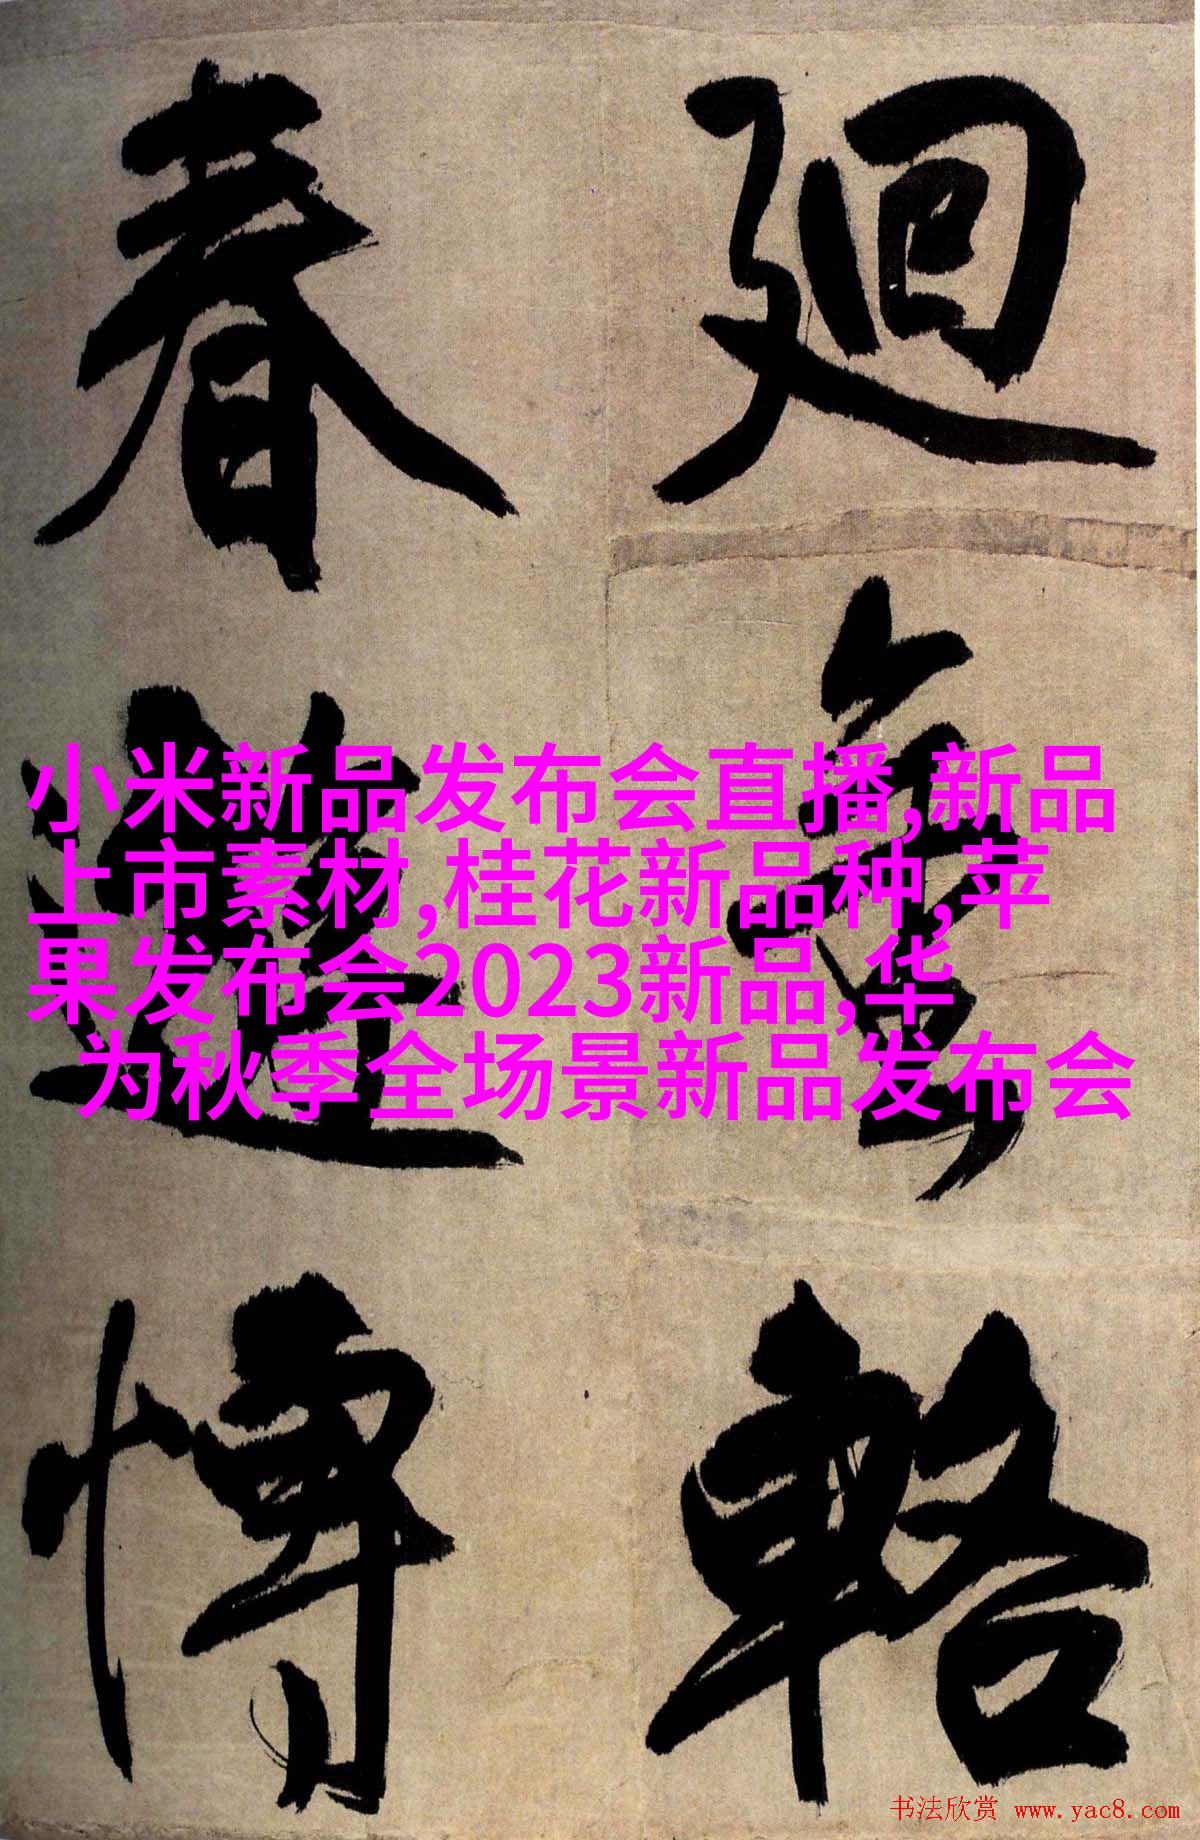 廻
輅
春
愽
小米新品发布会直播,新品
上市素材,桂花新品种,苹
果发布会2023新品,华
为秋季全场景新品发布会
书法欣赏 www.yac8.com